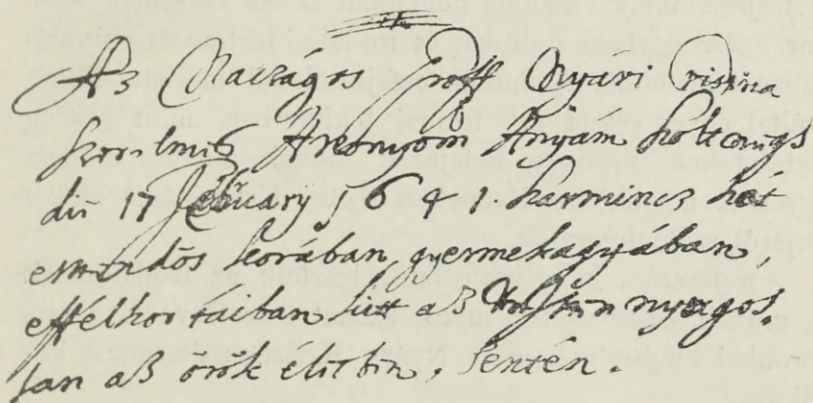 Az Nacságos Groff Nyári Cristina
Szerelmes Aszonyom Anyám holt meg
die 17 February 1641. harmincz hét
esztendős korában, gyermekagyában,
éffélkor táiban lött az Ur Isten nyugos,
tan az örök életben, Sentén.